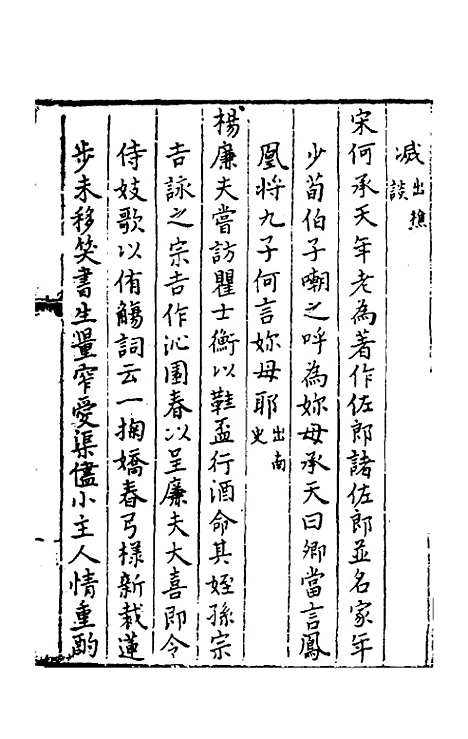 減出樵談
宋何承天年老為著作佐郎諸佐郎並名家年
少荀伯子嘲之呼為妳母承天曰卿當言鳳
凰將九子何言妳母耶出南史
楊廉夫嘗訪瞿士衡以鞋盃行酒命其姪孫宗
吉詠之宗吉作沁園春以呈廉夫大喜即令
侍妓歌以侑觴詞云一掬嬌春弓樣新裁蓮
步未移笑書生量窄愛渠儘小主人情重酌